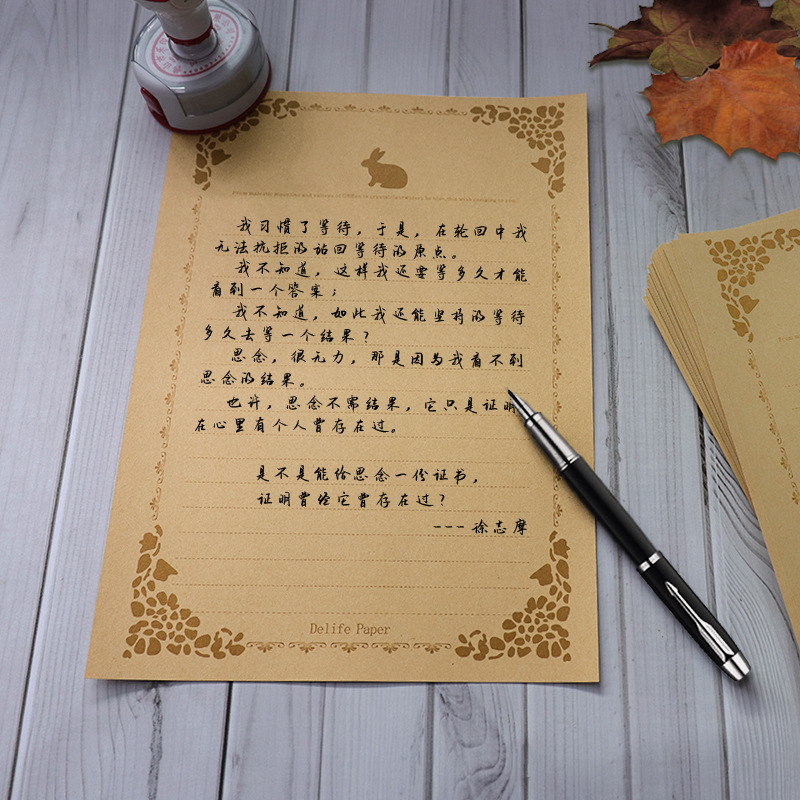 我习惯了等待，于是，在轮回中我
无法抗拒的站回等待的原点。
我不知道，这样我还要等多久才能
看到一个答案；
我不知道，如此我还能坚持的等待
多久去等一个结果？
思念，很无力，那是因为我看不到
思念的结果。
也许，思念不需结果，它只是证明
在心里有个人曾存在过。
是不是能给思念一份证书，
证明曾经它曾存在过？
---徐志摩
Delife Paper